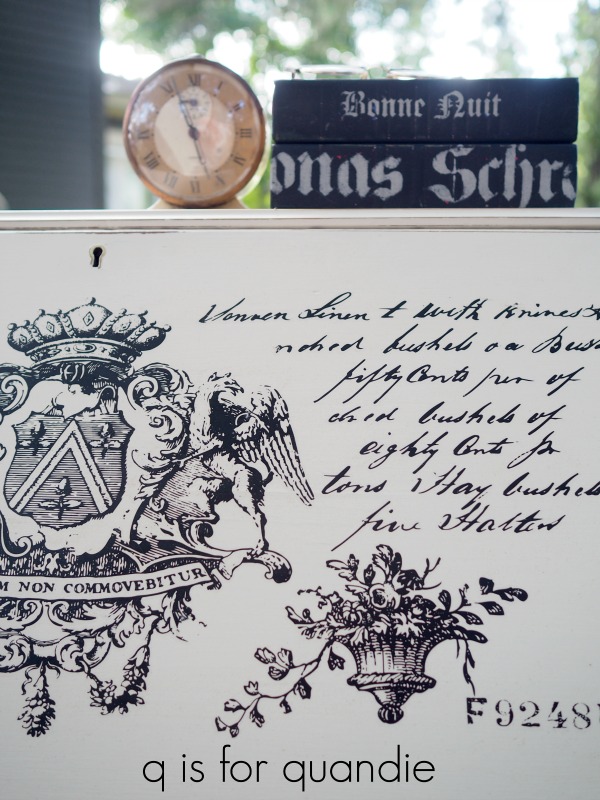 Bonne Nuit
onas Schr
Linen t with Knives
ndred bushels oa Bus
fifty Cents per of
dred bushels of
eighty Cents Pr
tons Hay bushels
five Halters
M NON COMMOVEBITUR
F9248
q is for quandie